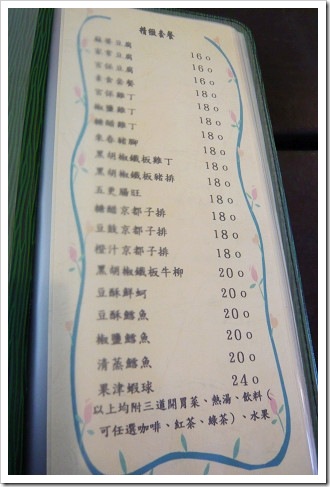 精緻套餐
麻婆豆腐 160
家常豆腐 160
宮保豆腐 160
素食套餐 180
宮保雞丁 180
椒鹽雞丁 180
糖醋雞丁 180
來春豬腳 180
黑胡椒鐵板雞丁 180
黑胡椒鐵板豬排 180
五更腸旺 180
糖醋京都子排 180
豆豉京都子排 180
橙汁京都子排 180
黑胡椒鐵板牛柳 200
豆酥鮮蚵 200
豆酥鱈魚 200
椒鹽鱈魚 200
清蒸鱈魚 200
果津蝦球 240
以上均附三道開胃菜、熱湯、飲料(
可任選咖啡、紅茶、綠茶)、水果